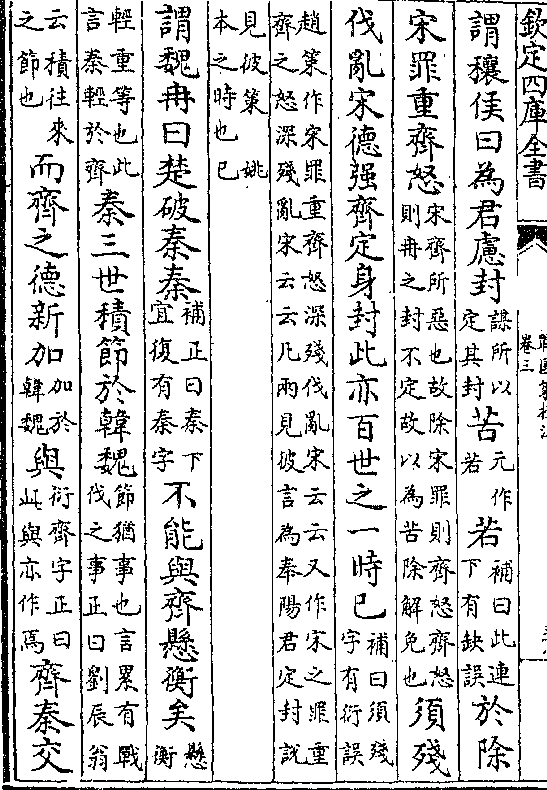 欽定四庫全書
卷三
謂穰侯曰為君慮封謀所以定其封苦元作若若補曰此連下有缺誤於除
宋罪重齊怒宋齊所惡也故除宋罪則齊怒齊怒則冉之封不定故以為苦除解免也須殘
伐亂宋德强齊定身封此亦百世之一時已補曰須殘字有衍誤
趙策作宋罪重齊怒深殘伐亂宋云云又作宋之罪重
齊之怒深殘亂宋云云凡兩見彼言為奉陽君定封說
見彼策姚
本之時也已
謂魏冉曰楚破秦秦補正曰秦下宜復有秦字不能與齊懸衡矣懸衡
輕重等也此言秦輕於齊秦三世積節於韓魏節猶事也言累有戰伐之事正曰劉辰翁
云積往來之節也而齊之德新加加於韓魏與衍齊字正曰此與亦作焉齊秦交